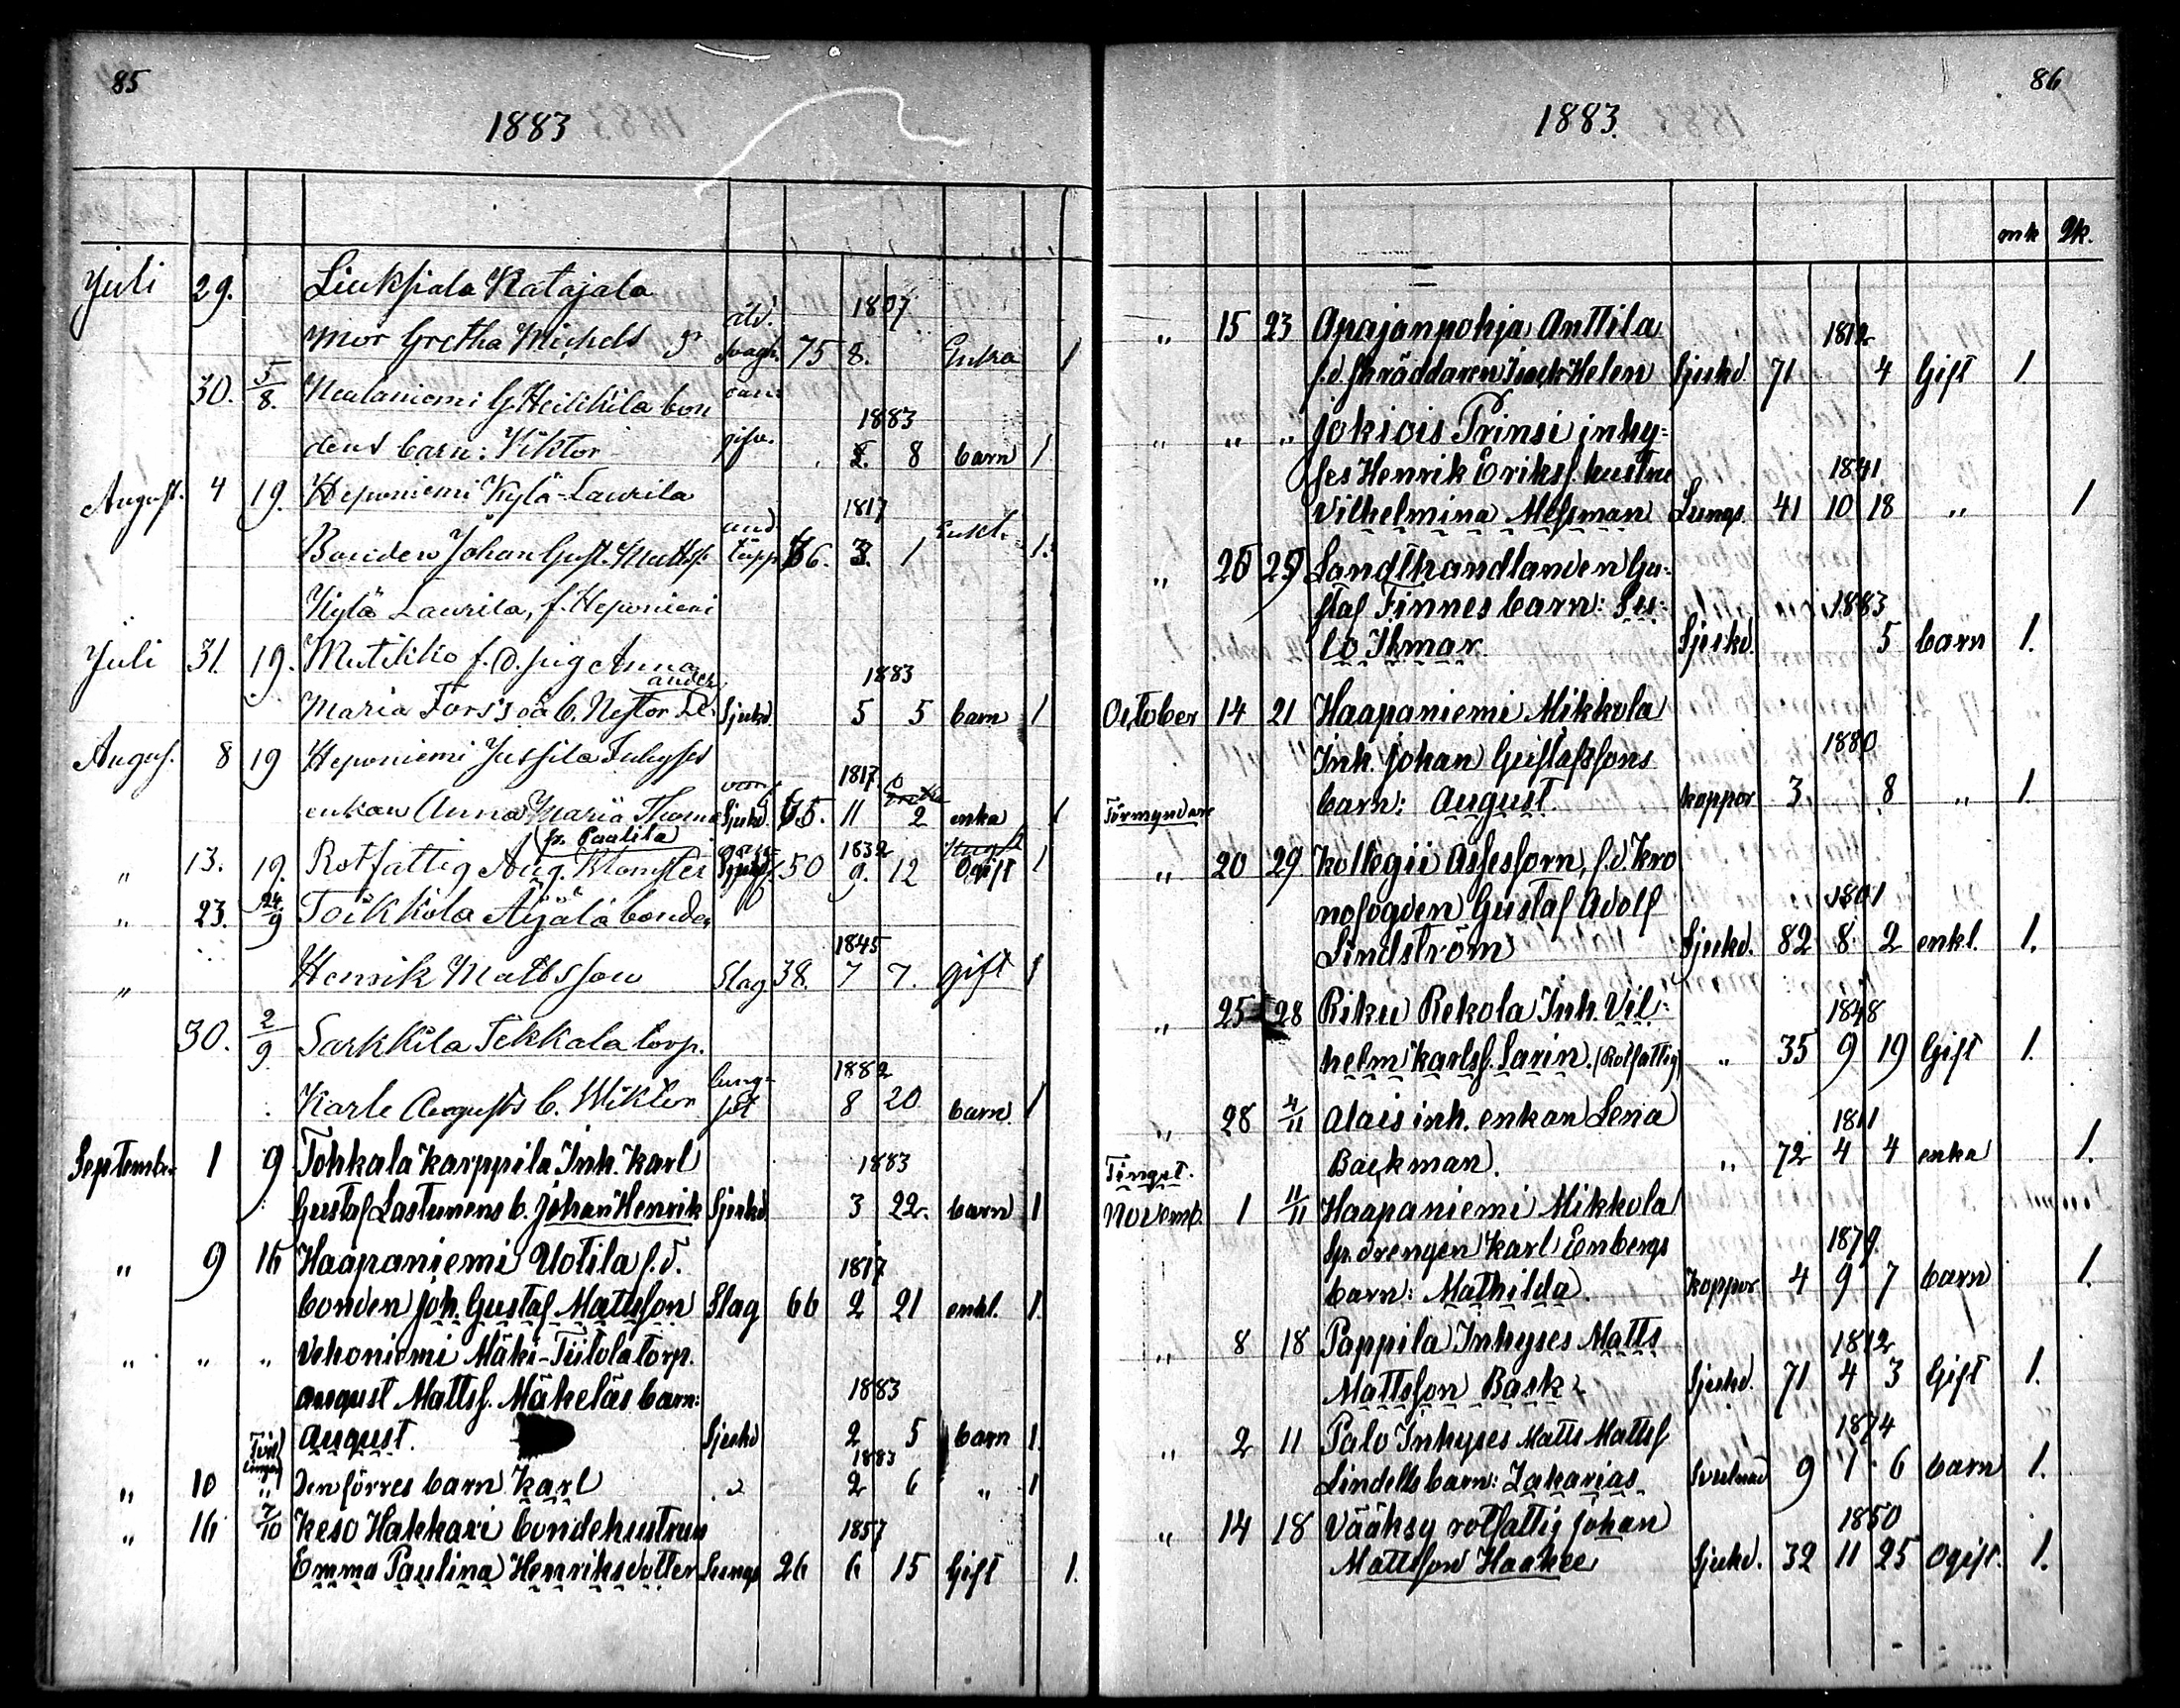 85
1883
Juli 29. Liuksiala Katajala 1807
mor Gretha Michels dr åld. svagh. 75 8. Enka 1
30. 5/8. Neulaniemi G. Heikkilä bon 1883
dens barn: Viktor 2. 8 barn 1
August. 4 19. Heponiemi Kylä-Laurila 1817
Bonden Johan Gust. Mattss. and täpp 66. 3. 1 Enkl. 1.
Kylä Laurila, f. Heponieni
Juli 31. 19. Mutikko f. d. pig Anna 1883
Maria Fors's oä b. Nestor Sjukd. 5 5 barn 1
Augus. 8 19 Heponiemi Jussila Inhyses 1817
enkan Anna Maria Thoma Sjukd. 65. 11 2 enka 1
(fr. Paalila)
" 13. 19. Rotfattig Aug. 50 1832 9. 12 Ogift 1
" 23. 24/9 Toikkola Äijälä bonden 1845
" Henrik Mattsson Slag 38. 7 7. gift 1
30. 2/9. Sarkkila Tekkala torp. 1882
Karle Augusts b. Wiktor lung sot 8 20 barn. 1
September 1 9 Tohkala Karppila Inh. Karl 1883
Gustaf Lastunens b. Johan Henrik Sjukd. 3 22. barn 1
" 9 16 Haapaniemi Uotila f. d. 1817
bonden Joh. Gustaf Mattsson Slag 66 2 21 enkl. 1.
" " " Vehoniemi Mäki-Tiitola torp.
August Mattss. Mäkeläs barn: 1883
August. Sjukd 2 5 barn 1.
Tvil lingar
" 10 " Den förres barn Karl 1883 2 6 " 1
" 16 7/10 Keso Hakkari bondehustrun 1857
Emma Paulina Henriksdotter Lungs 26 6 15 Gift 1.
86
1883.
mk qk.
" 15 23 Apajanpohja Anttila 1812
f. d. skräddaren Isak Helen Sjukd. 71 4 Gift 1.
" " " Jokiois Prinsi inhy=
ses Henrik Erikss. hustru 1841.
Vilhelmina Messman Lungs. 41 10 18 " 1
" 20 29 Landthandlanden Gu=
staf Finnes barn: 1883
lo Ilmar. Sjukd. 5 barn 1.
October 14 21 Haapaniemi Mikkola
Inh. Johan Gustafssons 1880
Förmyndare barn: August. koppor 3. 8 " 1.
" 20 29 Kollegii Assessorn, f. d. kro
nofogden Gustaf Adolf 1801
Lindström Sjukd. 82 8 2 enkl. 1.
" 25 28 Riku Rekola Inh. Vil= 1848
helm Karlss. Sarin. (Rotfattig) " 35 9 19 Gift 1.
" 28 4/11 Alais inh. enkan Lena 1811
Tinget. Backman. " 72 4 4 enka 1.
Novemb. 1 11/11 Haapaniemi Mikkola
Sp. drengen Karl Enbergs 1879.
barn: Mathilda. koppor 4 9 7 barn 1.
" 8 18 Pappila Inhyses Matts 1812
Mattsson Bask Sjukd. 71 4 3 Gift 1.
" 2 11 Palo Inhyses Matts Mattss 1874
Lindells barn: Zakarias Svulnad 9 1 6 barn 1.
" 14 18 Vääksy rotfattig Johan 1850
Mattsson Haakee Sjukd. 32 11 25 Ogift. 1.